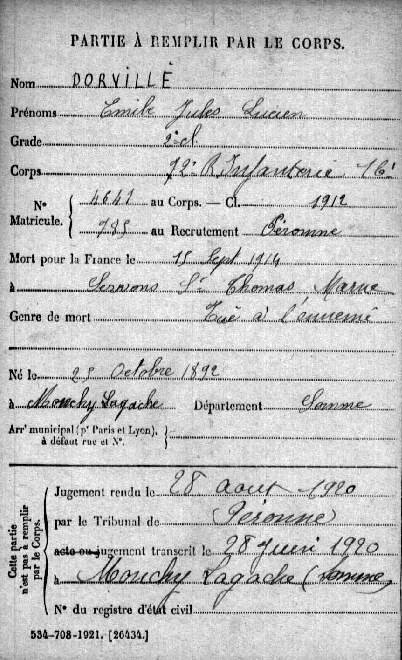 PARTIE À REMPLIR PAR LE CORPS.
Nom DORVILLÉ
Prénoms Emile Jules Lucien
Grade 2e cl.
Corps 72e R. Infanterie
N° Matricule. { 4641 au Corps. — Cl. 1912
785 au Recrutement Péronne
Mort pour la France le 15 Sept 1914
à St Thomas Marne
Genre de mort Tué à l'ennemi
Né le 25 Octobre 1892
à Monchy Lagache Département Somme
Arrt municipal (pr Paris et Lyon),
à défaut rue et N°.
Cette partie n'est pas à remplir par le Corps.
Jugement rendu le 28 août 1920
par le Tribunal de Péronne
acte ou jugement transcrit le 28 1920
à Monchy Lagache (Somme)
N° du registre d'état civil
534-708-1921. [26434.]